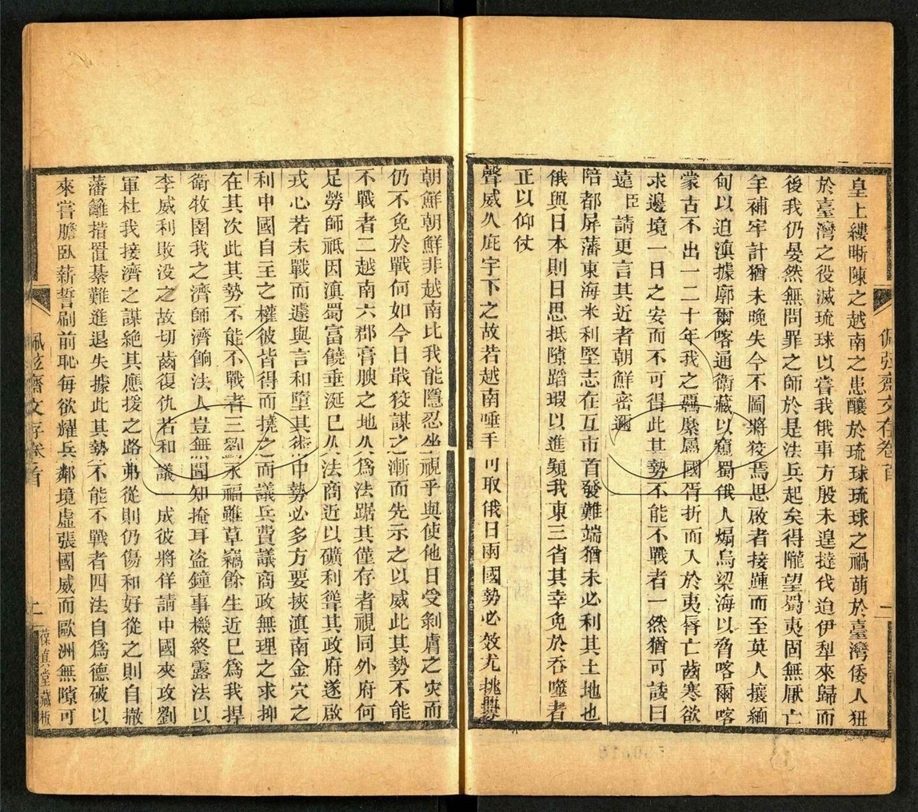 皇上縷晰陳之越南之患釀於琉球琉球之禍萌於臺灣倭人狃
於臺灣之役滅琉球以嘗我俄事方殷未遑撻伐迫伊犁來歸而
後我仍晏然無問罪之師於是法兵起矣得隴望蜀夷固無厭亡
羊補牢計猶未晚失今不圖將狡焉思啟者接踵而至英人攘緬
甸以迫滇據廓爾喀通衛藏以窺蜀俄人煽烏梁海以脅喀爾喀
蒙古不出一二十年我之屬國胥折而入於夷脣亡齒寒欲
求邊境一日之安而不可得此其勢不能不戰者一然猶可諉曰
遠臣請更言其近者朝鮮密邇
陪都屏藩東海米利堅志在互市首發難端猶未必利其土地也
俄與日本則日思抵隙蹈瑕以進窺我東三省其幸免於吞噬者
正以仰仗
聲威久庇宇下之故若越南唾手可取俄日兩國勢必效尤挑釁
佩弦齋文存卷首
一
朝鮮朝鮮非越南比我能隱忍坐視乎與使他日受剝膚之災而
仍不免於戰何如今日戢狡謀之漸而先示之以威此其勢不能
不戰者二越南六郡膏腴之地久爲法踞其僅存者視同外府何
足勞師祇因滇蜀富饒垂涎已久法商近以礦利聳其政府遂啟
戎心若未戰而遽與言和墮其術中勢必多方要挾滇南金穴之
利中國自主之權彼皆得而撓之而議兵費議商政無理之求抑
在其次此其勢不能不戰者三劉永福雖草竊餘生近已爲我捍
衛牧圉我之濟師濟餉法人豈無聞知掩耳盜鐘事機終露法以
李威利敗沒之故切齒復仇若和議一成彼將佯請中國夾攻劉
軍杜我接濟之謀絕其應援之路弗從則仍傷和好從之則自撤
藩籬措置棊難進退失據此其勢不能不戰者四法自爲德破以
來嘗膽臥薪誓刷前恥每欲耀兵鄰境虛張國威而歐洲無隙可
佩弦齋文存卷首
二
葆真堂藏板